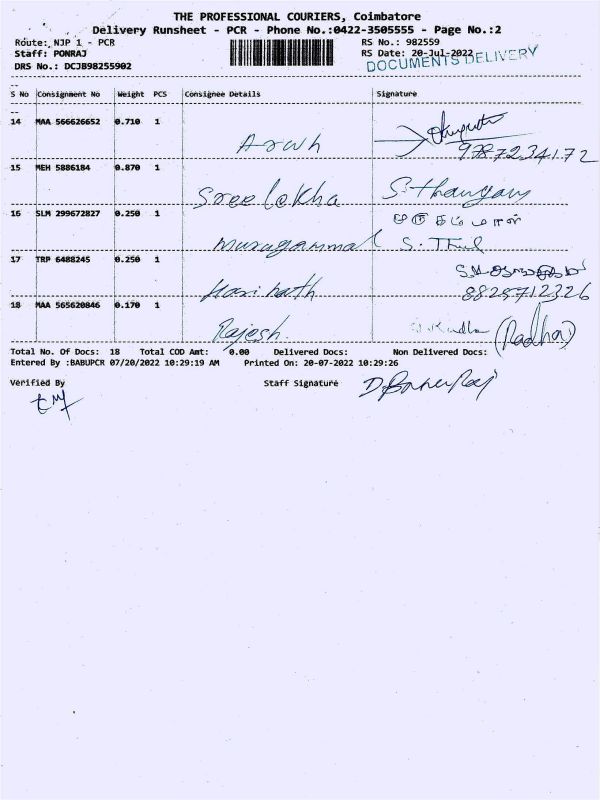 THE PROFESSIONAL COURIERS, Coimbatore
Delivery Runsheet - PCR - Phone No.:0422-3505555 - Page No.:2
Route: NJP 1 - PCR RS No.: 982559
Staff: PONRAJ RS Date: 20-Jul-2022
DRS No.: DCJB98255902 DOCUMENTS DELIVERY
S No Consignment No Weight PCS Consignee Details Signature
14 MAA 566626652 0.710 1
9787234172
15 MEH 5886184 0.870 1
Sreelekha
16 SLM 299672827 0.250 1
Murugammal
17 TRP 6488245 0.250 1
8825712326
Hari nath
18 MAA 565620846 0.170 1
Rajesh. (Radha)
Total No. Of Docs: 18 Total COD Amt: 0.00 Delivered Docs: Non Delivered Docs:
Entered By :BABUPCR 07/20/2022 10:29:19 AM Printed On: 20-07-2022 10:29:26
Verified By Staff Signature